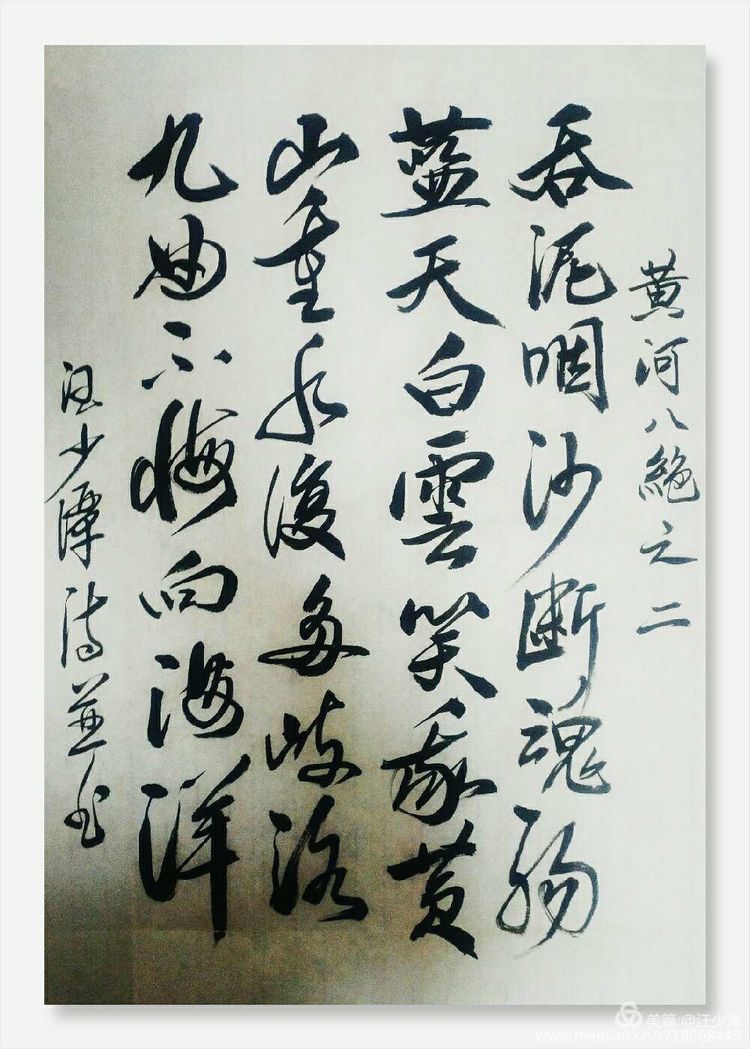 黄河八絕之二
吞泥咽沙断魂肠
藍天白雲笑我黄
山重水復多歧路
九曲不悔向海洋
汪少潭诗並书
美篇 @汪少潭
www.meipian.cn/c/18068449